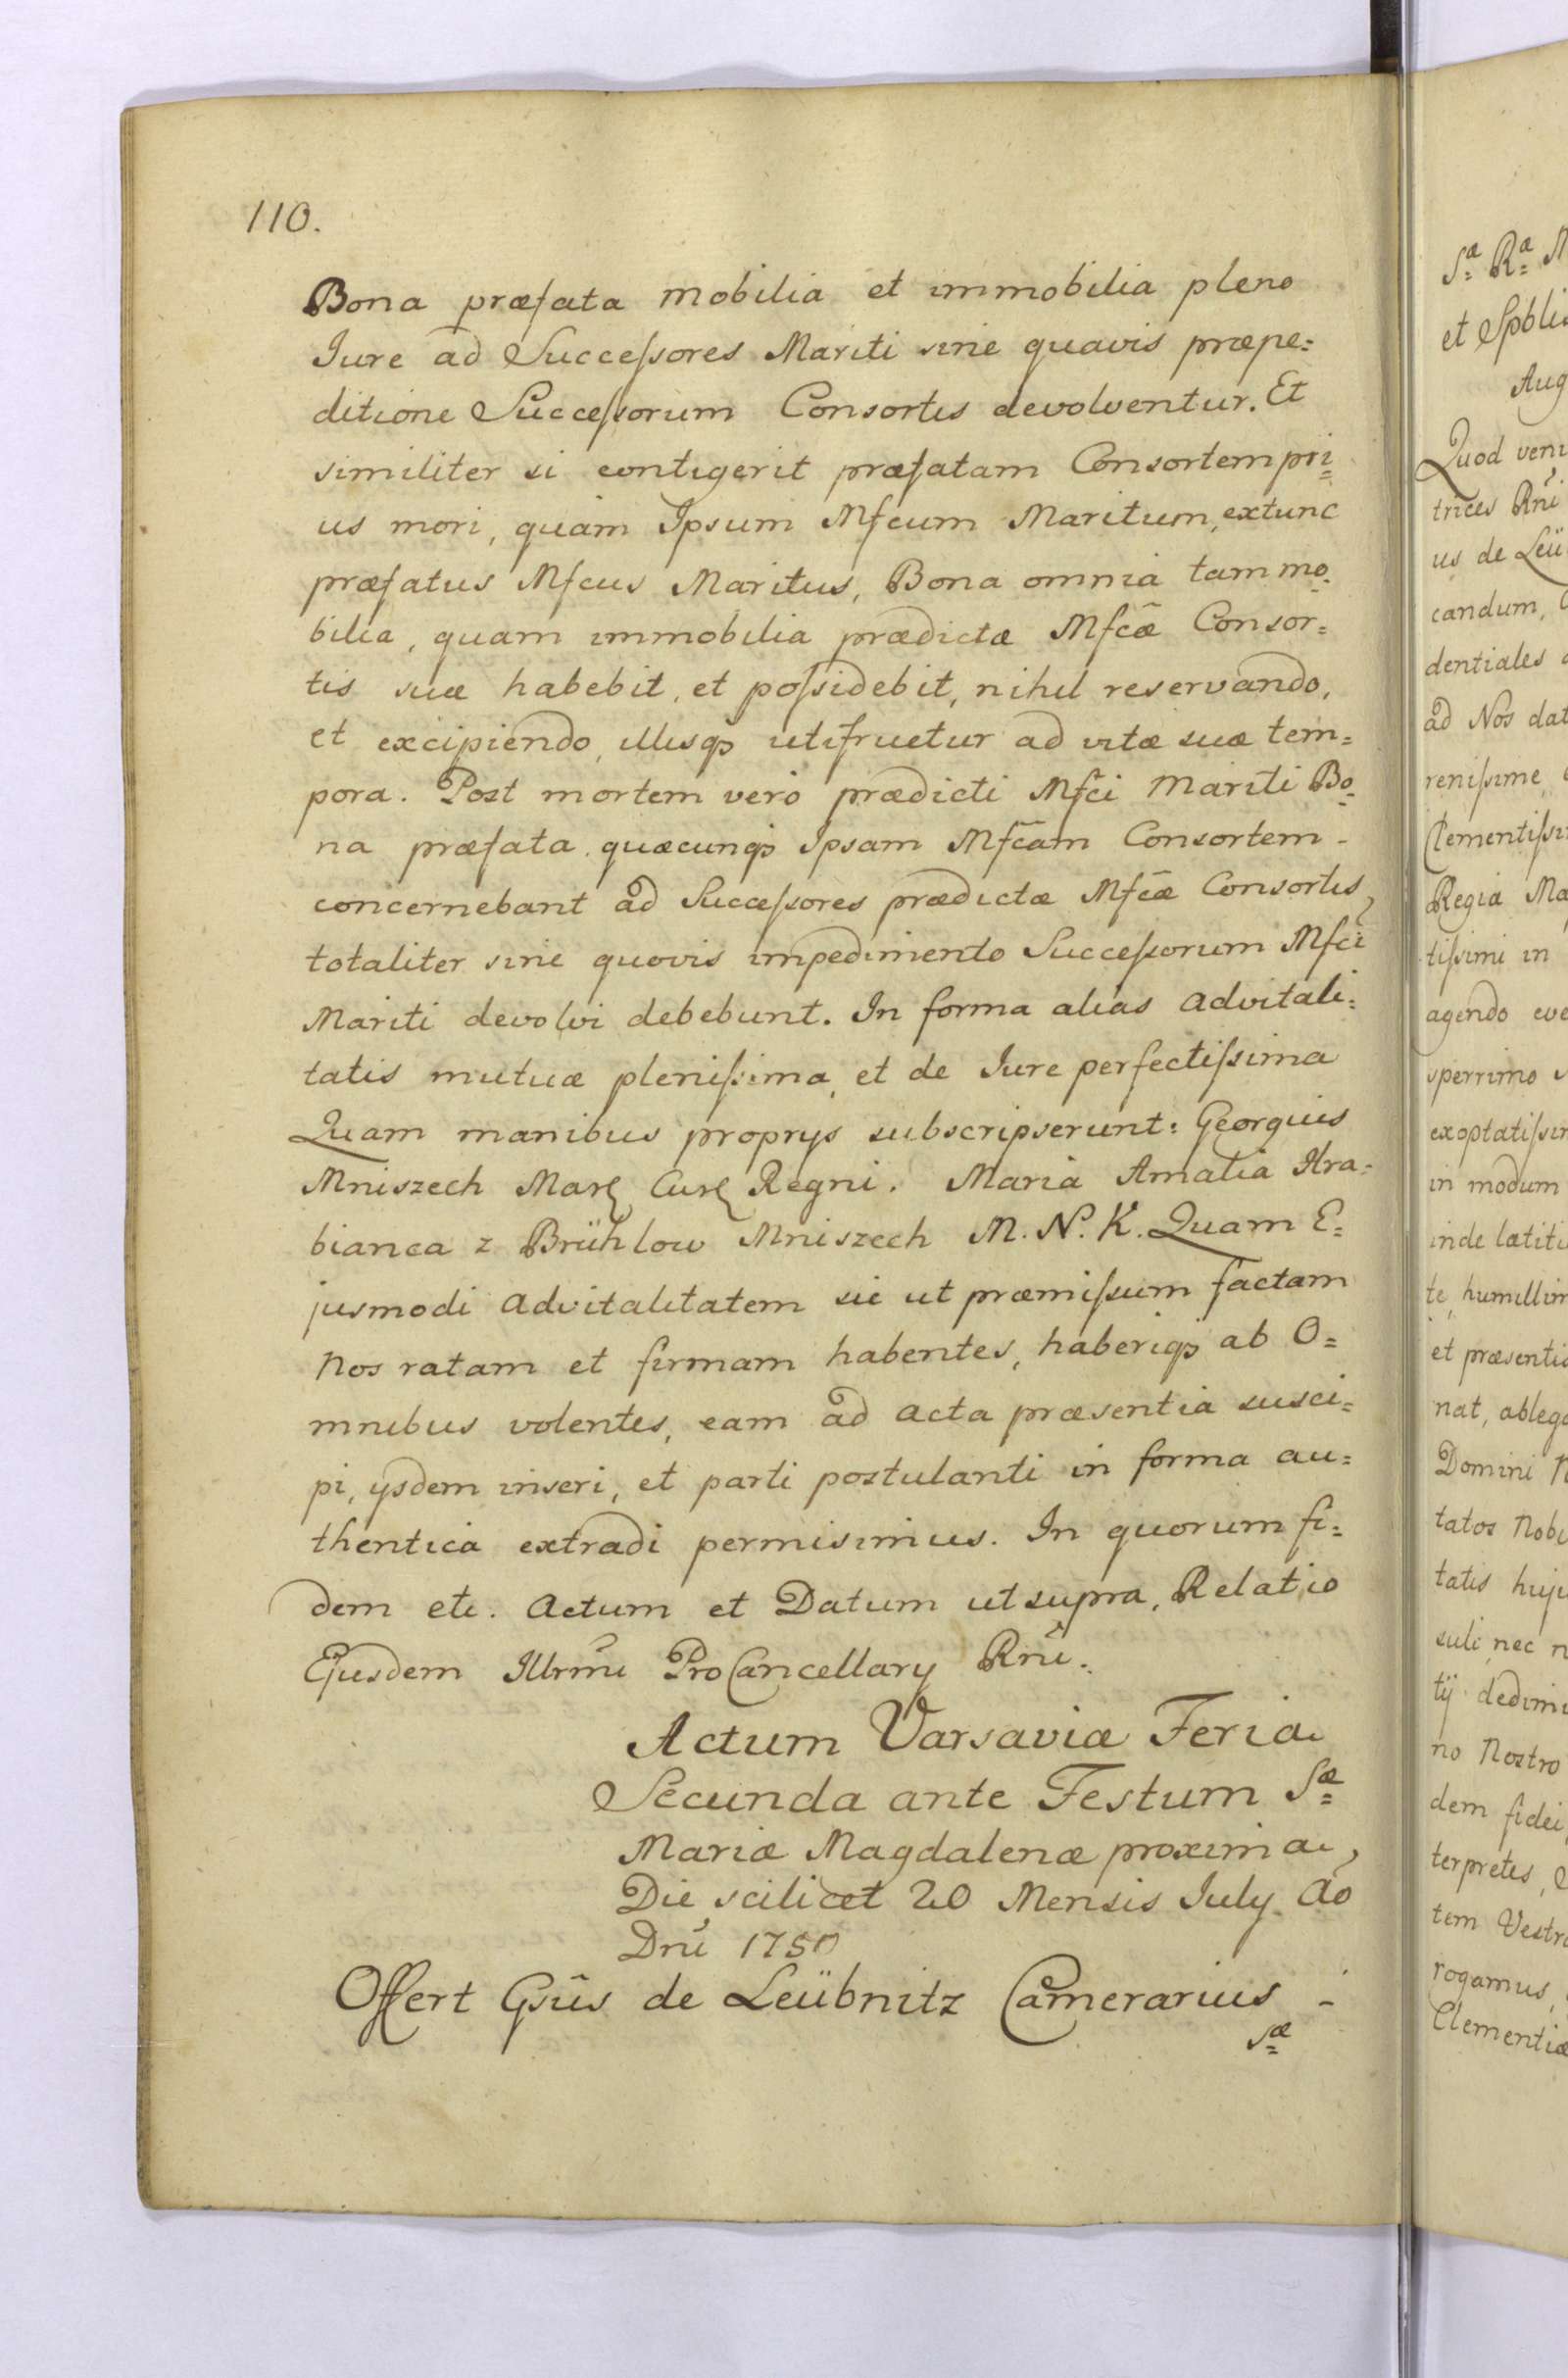 110.
Bona præfata mobilia et immobilia pleno
Iure ad Succeſsores Mariti sine quavis præpe=
ditione Succeſsorum Consortis devolventur. Et
similiter si contigerit præfatam Consortem pri=
us mori, quam Ipsum Mfcum Maritum, extunc
præfatus Mfcus Maritus, Bona omnia tam mo=
bilia, quam immobilia prædictæ Mfcæ Consor=
tis suæ habebit, et poſsidebit, nihil reservando,
et excipiendo, illisqȝ utifruetur ad vitæ suæ tem=
pora. Post mortem vero prædicti Mfci Mariti Bo=
na præfata quæcunqȝ Ipsam Mfcam Consortem -
concernebant ad Succeſsores prædictæ Mfcæ Consortis,
totaliter sine quovis impedimento Succeſsorum Mfci
Mariti devolvi debebunt. In forma alias advitali=
tatis mutuæ pleniſsima, et de Iure perfectiſsima
Quam manibus proprys subscripserunt: Georgius
Mniszech Marl Curl Regni. Maria Amalia Hra=
bianca z Brühlow Mniszech M. N. K. Quam E=
jusmodi advitalitatem sic ut præmiſsum factam
Nos ratam et firmam habentes, haberiqȝ ab O=
mnibus volentes, eam ad acta præsentia susci=
pi, ysdem inseri, et parti postulanti in forma au=
thentica extradi permisimus. In quorum fi=
dem etc. Actum et Datum ut supra, Relatio
Ejusdem Illrmi ProCancellary Rni.
Actum Varsaviæ Feria
Secunda ante Festum Sæ=
Mariæ Magdalenæ proxima,
Die scilicet 20 Mensis July Ao
Dni 1750
Offert Gsus de Leübnitz Camerarius -
Sæ=
Sæ= Ræ=
et Spblic
Aug
Quod veni
trices Rni
us de Leü
candum,
dentiales
ad Nos dat
reniſsime
Clementiſsi
Regia Ma
tiſsimi in
agendo eve
sperrimo
exoptatiſsi
in modum
inde lætiti
te, humillim
et præsentia
nat, ablega
Domini
tatos Nobi
tatis huju
suli, nec n
tij dedimu
no Nostro
dem fidei
terpretes,
tem Vestra
rogamus,
Clementiæ